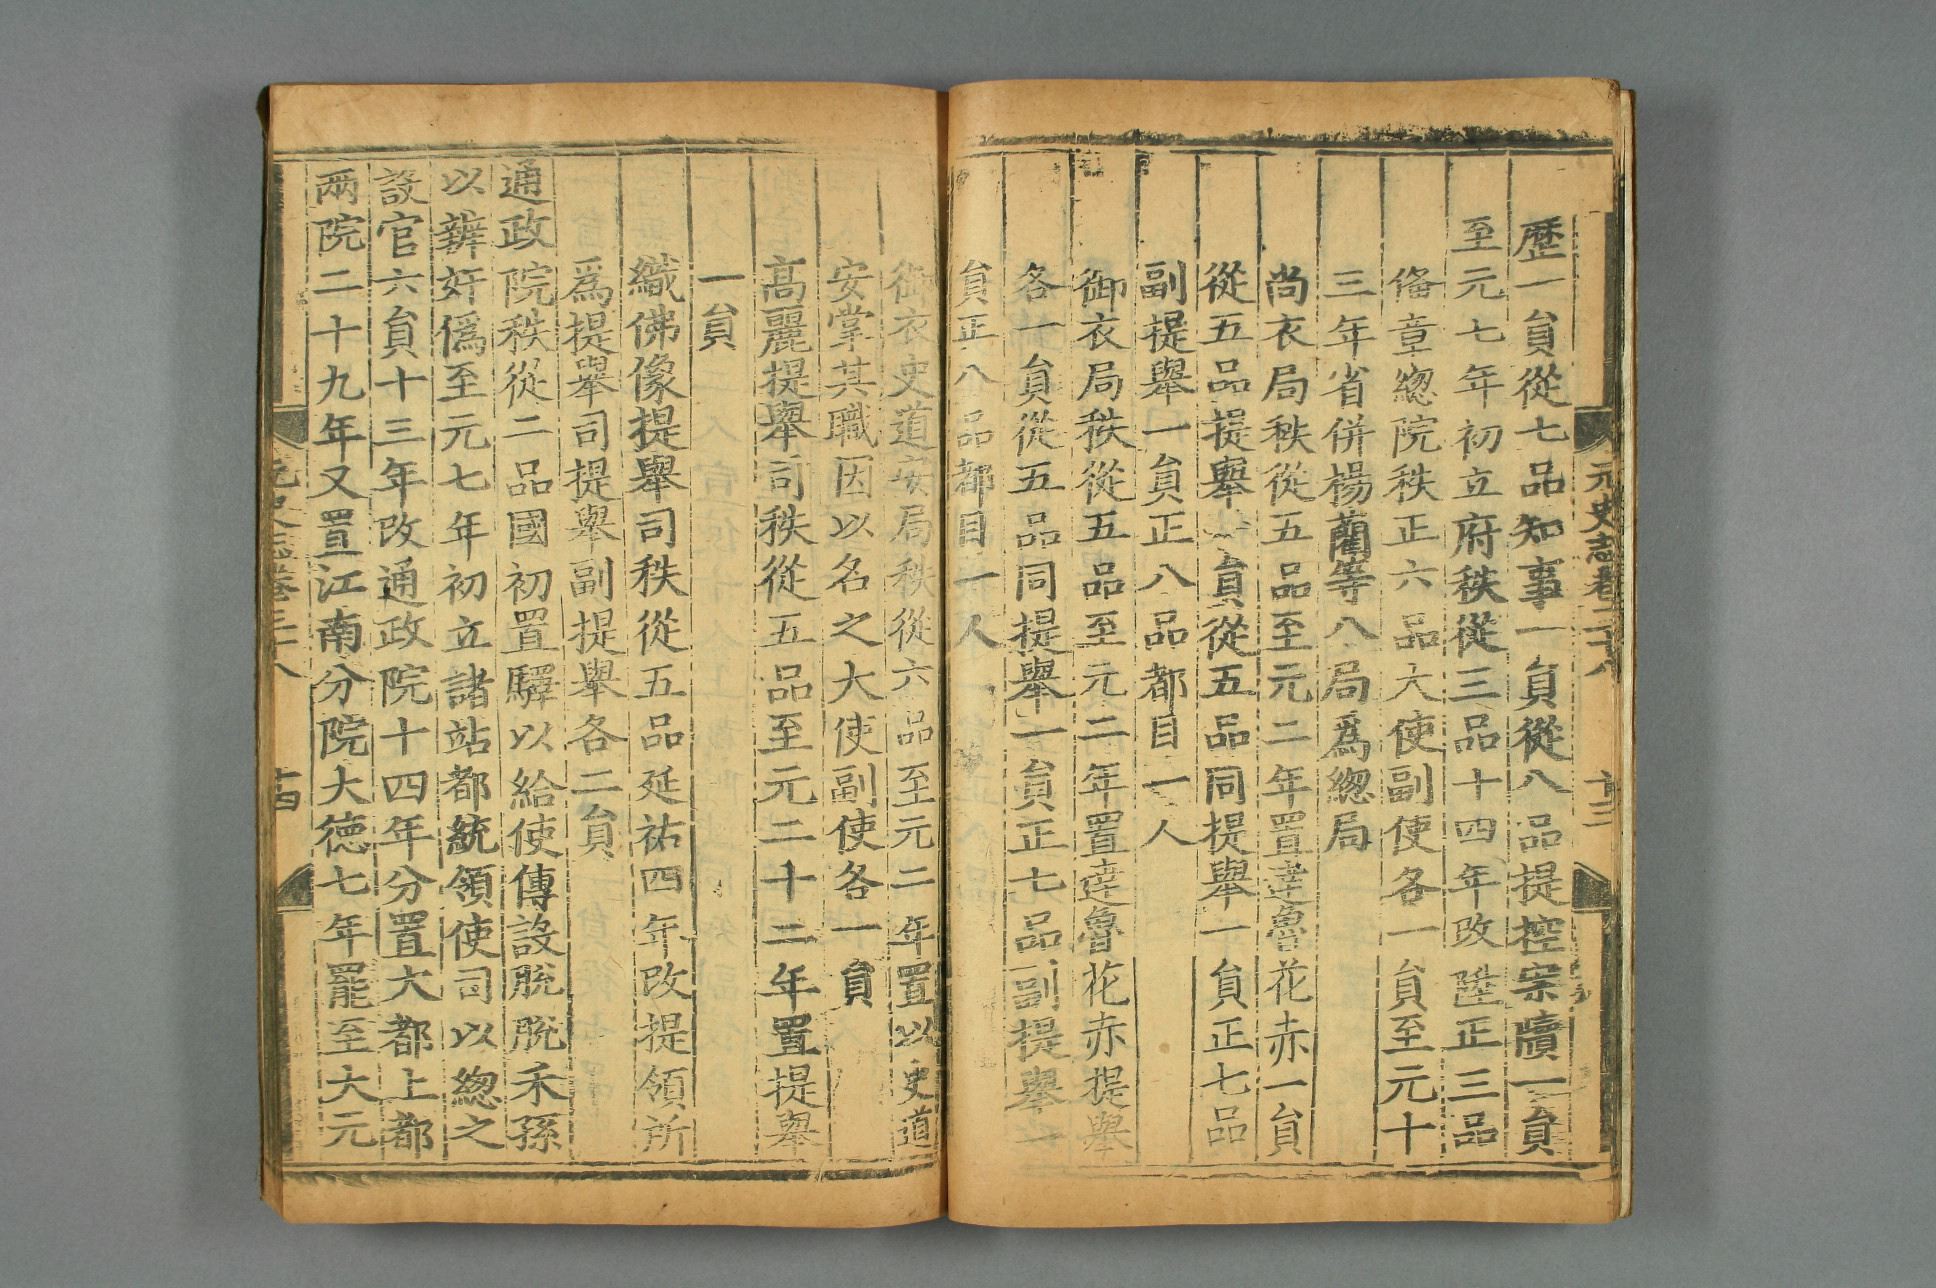 元史志卷三十八 十三
歷一員從七品知事一員從八品提控案牘一員
至元七年初立府秩從三品十四年改陞正三品
俻章緫院秩正六品大使副使各一員至元十
三年省併楊藺等八局爲緫局
尚衣局秩從五品至元二年置達魯花赤一員
從五品提舉一員從五品同提舉一員正七品
副提舉一員正八品都目一人
御衣局秩從五品至元二年置達魯花赤提舉
各一員從五品同提舉一員正七品副提舉一
員正八品都目一人
御衣史道安局秩從六品至元二年置以史道
安掌其職因以名之大使副使各一員
高麗提舉司秩從五品至元二十二年置提舉
一員
織佛像提舉司秩從五品延祐四年改提領所
爲提舉司提舉副提舉各二員
通政院秩從二品國初置驛以給使傳設脫脫禾孫
以辨奸僞至元七年初立諸站都統領使司以緫之
設官六員十三年改通政院十四年分置大都上都
兩院二十九年又置江南分院大德七年罷至大元
元史志卷三十八 十四